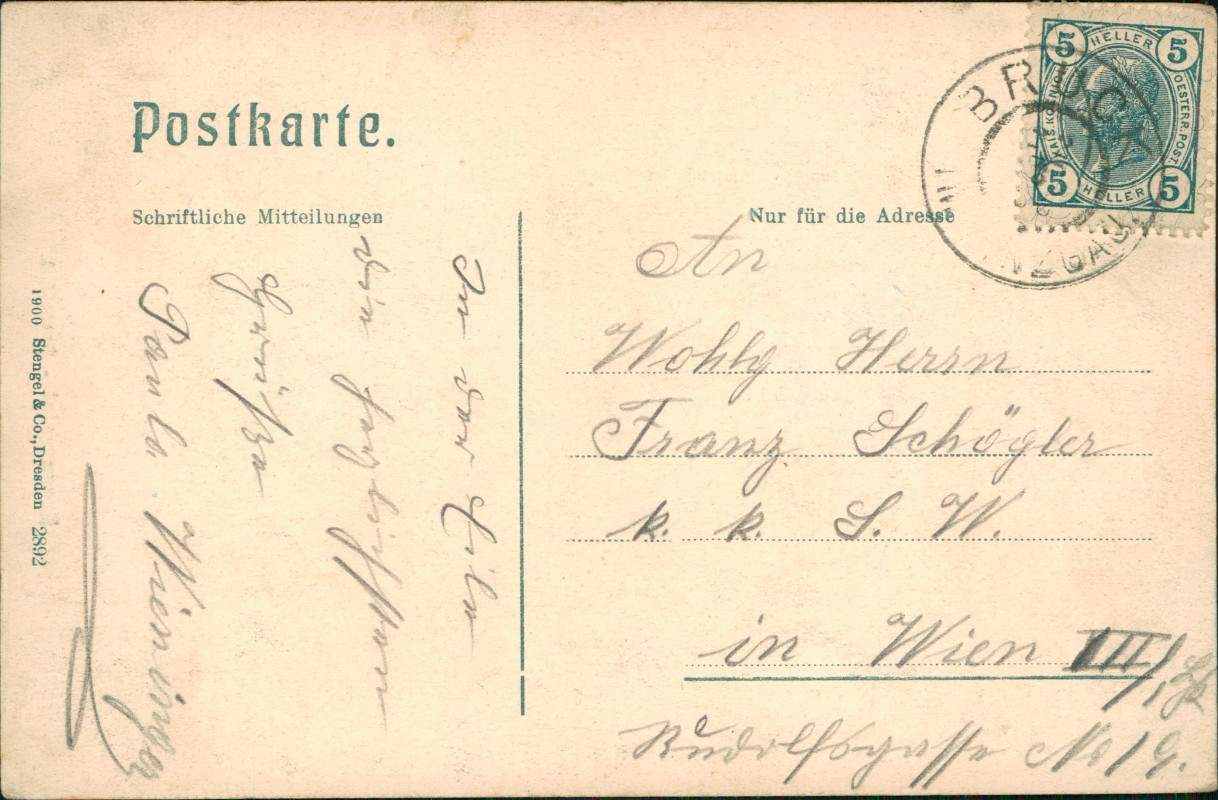 Postkarte.
Schriftliche Mitteilungen
Nur für die Adresse
5 HELLER 5
OESTERR. POST.
5 HELLER 5
BRUCK
PINZGAU
In der Eile
die herzlichsten
Grüße
Paula Wieninger
An
Wohlg Herrn
Franz Schögler
k. k. S. W.
in Wien III/1
Rudolfsgasse No 19.
1900 Stengel & Co., Dresden 2892